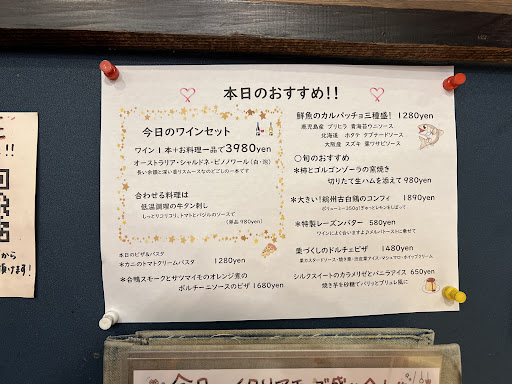 本日のおすすめ!!
今日のワインセット
ワイン1本+お料理一品で3980yen
オーストラリア・シャルドネ・ピノノワール(白・泡)
長い余韻と深い香りスムースなのどごしの一本です
合わせる料理は
低温調理の牛タン刺し
しっとりコリコリ、トマトとバジルのソースで
(単品980yen)
本日のピザ&パスタ
*カニのトマトクリームパスタ 1280yen
*合鴨スモークとサツマイモのオレンジ煮の
ポルチーニソースのピザ 1680yen
鮮魚のカルパッチョ三種盛! 1280yen
鹿児島産 ブリヒラ 青海苔ウニソース
北海道 ホタテ タプナードソース
大阪産 スズキ 葉ワサビソース
〇旬のおすすめ
*柿とゴルゴンゾーラの窯焼き
切りたて生ハムを添えて 980yen
*大きい!錦州古白鶏のコンフィ 1890yen
ボリューミー350g!ぎゅっとレモンをしぼって
*特製レーズンバター 580yen
ワインによく合いますよ♪メルバトーストに乗せて
栗づくしのドルチェピザ 1480yen
栗カスタードソース・焼き栗・渋皮栗アイス・マシュマロ・ホイップクリーム
シルクスイートのカラメリゼとバニラアイス 650yen
焼き芋を砂糖でパリッとブリュレ風に
から
頂けます!